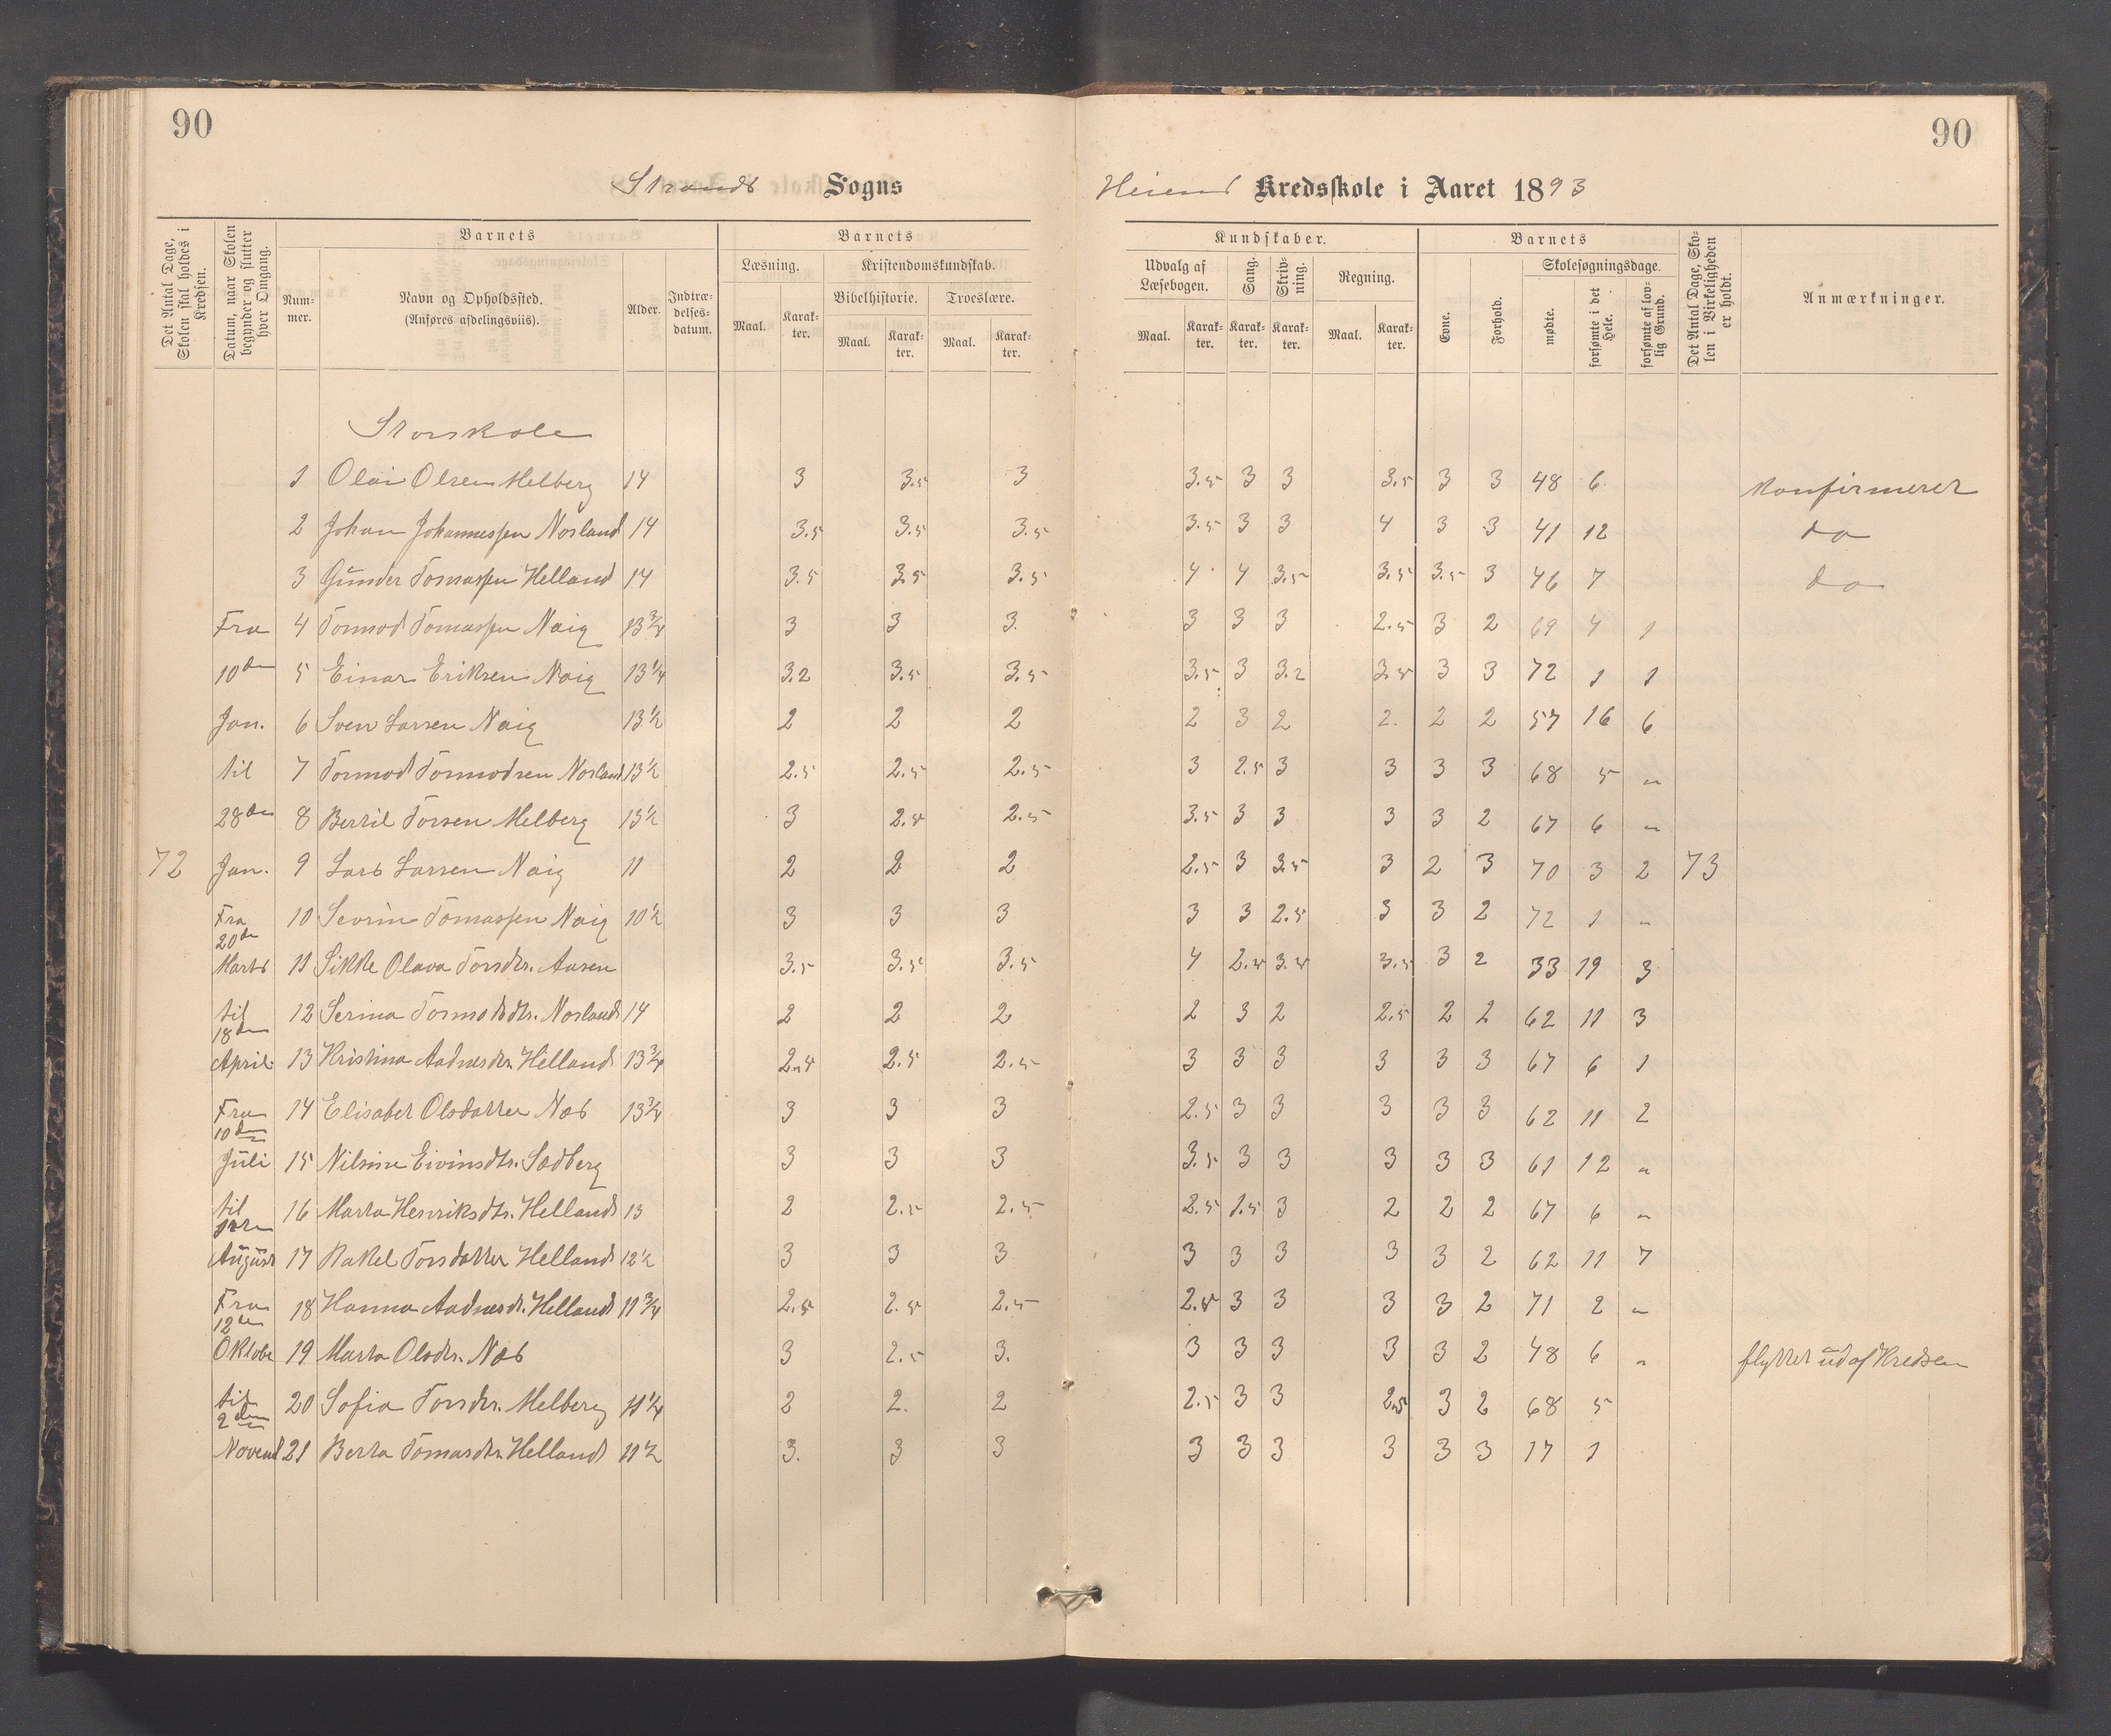 90
90
Strands Sogns
Heiens Kredsskole i Aaret 1893
Det Antal Dage, Skolen skal holdes i Kredsen.
Datum, naar Skolen begynder og slutter hver Omgang.
Barnets
Num-mer.
Navn og Opholdssted.
(Anføres afdelingsviis).
Alder.
Indtræ-delses-datum.
Barnets
Læsning.
Kristendomskundskab.
Bibelhistorie.
Troeslære.
Maal. Karak-ter. Maal. Karak-ter. Maal. Karak-ter.
Kundskaber.
Udvalg af Læsebogen.
Sang.
Skriv-ning.
Regning.
Maal. Karak-ter. Karak-ter. Karak-ter. Maal. Karak-ter.
Barnets
Evne.
Forhold.
Skolesøgningsdage.
mødte.
forsømte i det Hele.
forsømte af lov-lig Grund.
Det Antal Dage, Sko-len i Virkeligheden er holdt.
Anmærkninger.
Storskole
1 Olai Olsen Melberg 14 3 3.5 3 3.5 3 3 3.5 3 3 48 6 Konfirmeret
2 Johan Johannessen Norland 14 3.5 3.5 3.5 3.5 3 3 4 3 3 41 12 do
3 Gunder Tomassen Helland 14 3.5 3.5 3.5 4 4 3.5 3.5 3.5 3 46 7 do
Fra 4 Tormod Tomassen Naig 13¾ 3 3 3. 3 3 3 2.5 3 2 69 4 1
10de 5 Einar Eriksen Naig 13¼ 3.2 3.5 3.5 3.5 3 3.2 3.5 3 3 72 1 1
Jan. 6 Sven Larsen Naig 13½ 2 2 2 2 3 2 2. 2 2 57 16 6
til 7 Tormod Tormodsen Norland 13½ 2.5 2.5 2.5 3 2.5 3 3 3 3 68 5 "
28de 8 Bertil Torsen Melberg 13½ 3 2.5 2.5 3.5 3 3 3 3 2 67 6 "
72 Jan. 9 Lars Larsen Naig 11 2 2 2 2.5 3 3.5 3 2 3 70 3 2 73
Fra 20de 10 Sevrin Tomassen Naig 10½ 3 3 3 3 3 2.5 3 3 2 72 1 "
Marts 11 Sikke Olava Torsdtr. Aasen 3.5 3.5 3.5 4 2.5 3.5 3.5 3 2 33 19 3
til 18de 12 Serina Tormodsdtr. Norland 14 2 2 2 2 3 2 2.5 2 2 62 11 3
April 13 Kristina Aadnesdtr. Helland 13¾ 2.5 2.5 2.5 3 3 3 3 3 3 67 6 1
Fra 10de 14 Elisabet Olsdatter Næs 13¾ 3 3 3 2.5 3 3 3 3 3 62 11 2
Juli 15 Nilsine Eivinsdtr. Sædberg 3 3 3 3.5 3 3 3 3 3 61 12 "
til 16 Marta Henriksdtr. Helland 13 2 2.5 2.5 2.5 1.5 3 2 2 2 67 6 "
August 17 Rakel Torsdatter Helland 12½ 3 3 3 3 3 3 3 3 2 62 11 7
Fra 12te 18 Hanna Aadnesdt. Helland 11¾ 2.5 2.5 2.5 2.5 3 3 3 3 2 71 2 "
Oktober 19 Marta Olsdtr. Næs 3 2.5 3. 3 3 3 3 3 2 48 6 " flyttet ud af Kredsen
til 2den 20 Sofia Torsdtr. Melberg 11¼ 2 2. 2 2.5 3 3 2.5 3 2 68 5
Novemb 21 Berta Tomasdtr. Helland 11½ 3. 3 3 3 3 3 3 3 3 17 1